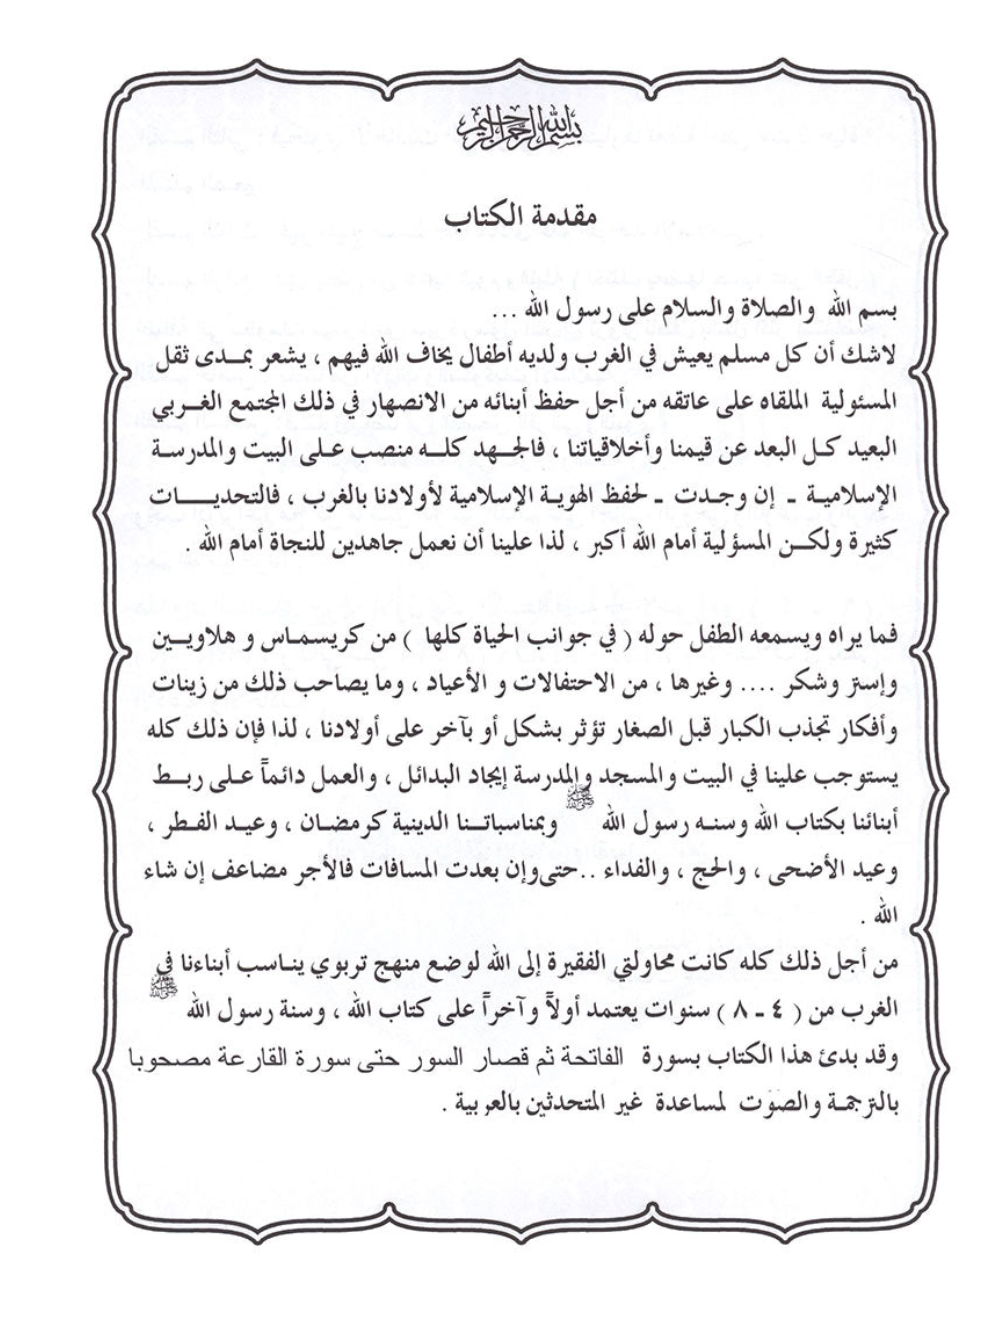 بسم الله الرحمن الرحيم
مقدمة الكتاب
بسم الله والصلاة والسلام على رسول الله ...
لاشك أن كل مسلم يعيش في الغرب ولديه أطفال يخاف الله فيهم ، يشعر بمدى ثقل
المسئولية الملقاه على عاتقه من أجل حفظ أبنائه من الانصهار في ذلك المجتمع الغربي
البعيد كل البعد عن قيمنا وأخلاقياتنا ، فالجهد كله منصب على البيت والمدرسة
الإسلامية - إن وجدت - لحفظ الهوية الإسلامية لأولادنا بالغرب ، فالتحديات
كثيرة ولكن المسؤلية أمام الله أكبر ، لذا علينا أن نعمل جاهدين للنجاة أمام الله .
فما يراه ويسمعه الطفل حوله ( في جوانب الحياة كلها ) من كريسماس و هلاويين
وإستر وشكر .... وغيرها ، من الاحتفالات و الأعياد ، وما يصاحب ذلك من زينات
وأفكار تجذب الكبار قبل الصغار تؤثر بشكل أو بآخر على أولادنا ، لذا فإن ذلك كله
يستوجب علينا في البيت والمسجد والمدرسة إيجاد البدائل ، والعمل دائماً على ربط
أبنائنا بكتاب الله وسنه رسول الله ﷺ وبمناسباتنا الدينية كرمضان ، وعيد الفطر ،
وعيد الأضحى ، والحج ، والفداء ..حتى وإن بعدت المسافات فالأجر مضاعف إن شاء
الله .
من أجل ذلك كله كانت محاولتي الفقيرة إلى الله لوضع منهج تربوي يناسب أبناءنا في
الغرب من ( ٤ - ٨ ) سنوات يعتمد أولاً وآخراً على كتاب الله ، وسنة رسول الله ﷺ
وقد بدئ هذا الكتاب بسورة الفاتحة ثم قصار السور حتى سورة القارعة مصحوبا
بالترجمة والصوت لمساعدة غير المتحدثين بالعربية .